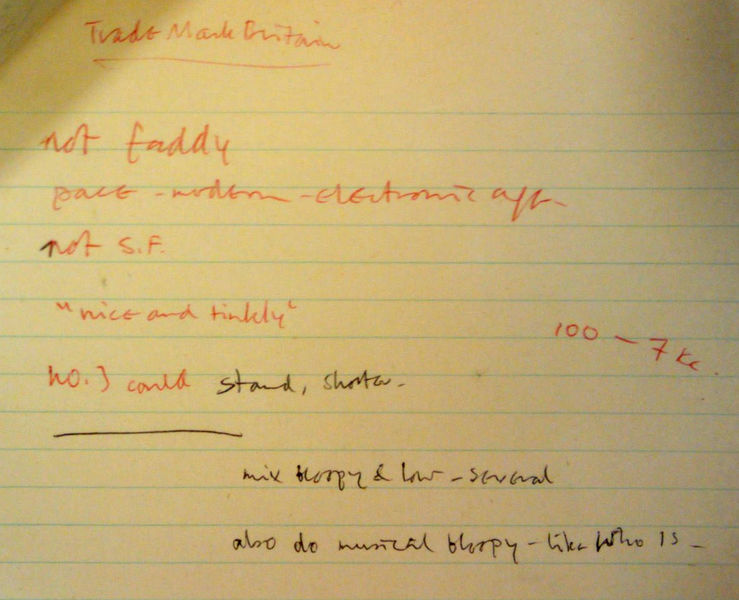 Trade Mark Britain
not faddy
pace - modern - electronic age -
not S.F.
"nice and tinkly"
100 - 7 Kc.
no. 3 could stand, shorter.
mix bloopy & low - several
also do musical bloopy - like who is -